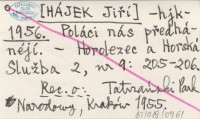 [HÁJEK Jiří] -hjk-
1956. Poláci nás předhá-
nějí. - Horolezec a Horská
Služba 2, nr 9: 205-206.
Rec. o: Tatrzański Park
Narodowy, Kraków 1955.